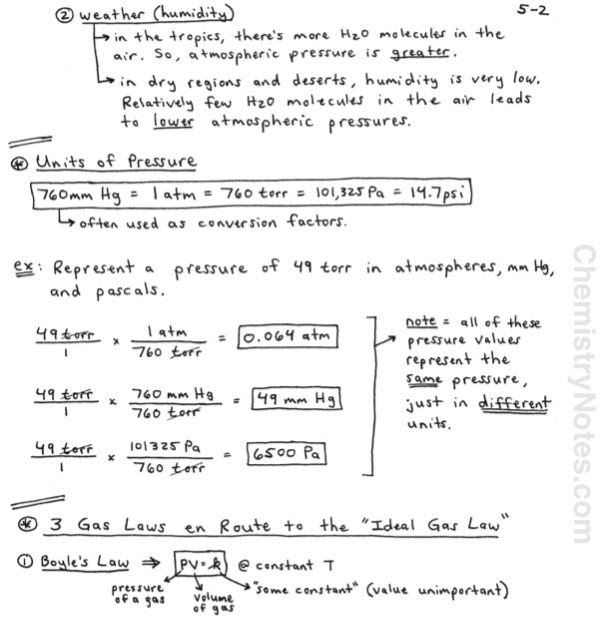 5-2
② weather (humidity)
→ in the tropics, there's more H2O molecules in the
air. So, atmospheric pressure is greater.
→ in dry regions and deserts, humidity is very low.
Relatively few H2O molecules in the air leads
to lower atmospheric pressures.
⊛ Units of Pressure
760mm Hg = 1 atm = 760 torr = 101,325 Pa = 14.7psi
→ often used as conversion factors.
ex: Represent a pressure of 49 torr in atmospheres, mm Hg,
and pascals.
49 torr / 1 × 1 atm / 760 torr = 0.064 atm
49 torr / 1 × 760 mm Hg / 760 torr = 49 mm Hg
49 torr / 1 × 101325 Pa / 760 torr = 6500 Pa
note = all of these
pressure values
represent the
same pressure,
just in different
units.
⊛ 3 Gas Laws en Route to the "Ideal Gas Law"
① Boyle's Law ⇒ PV=k @ constant T
pressure
of a gas
volume
of gas
"some constant" (value unimportant)
ChemistryNotes.com